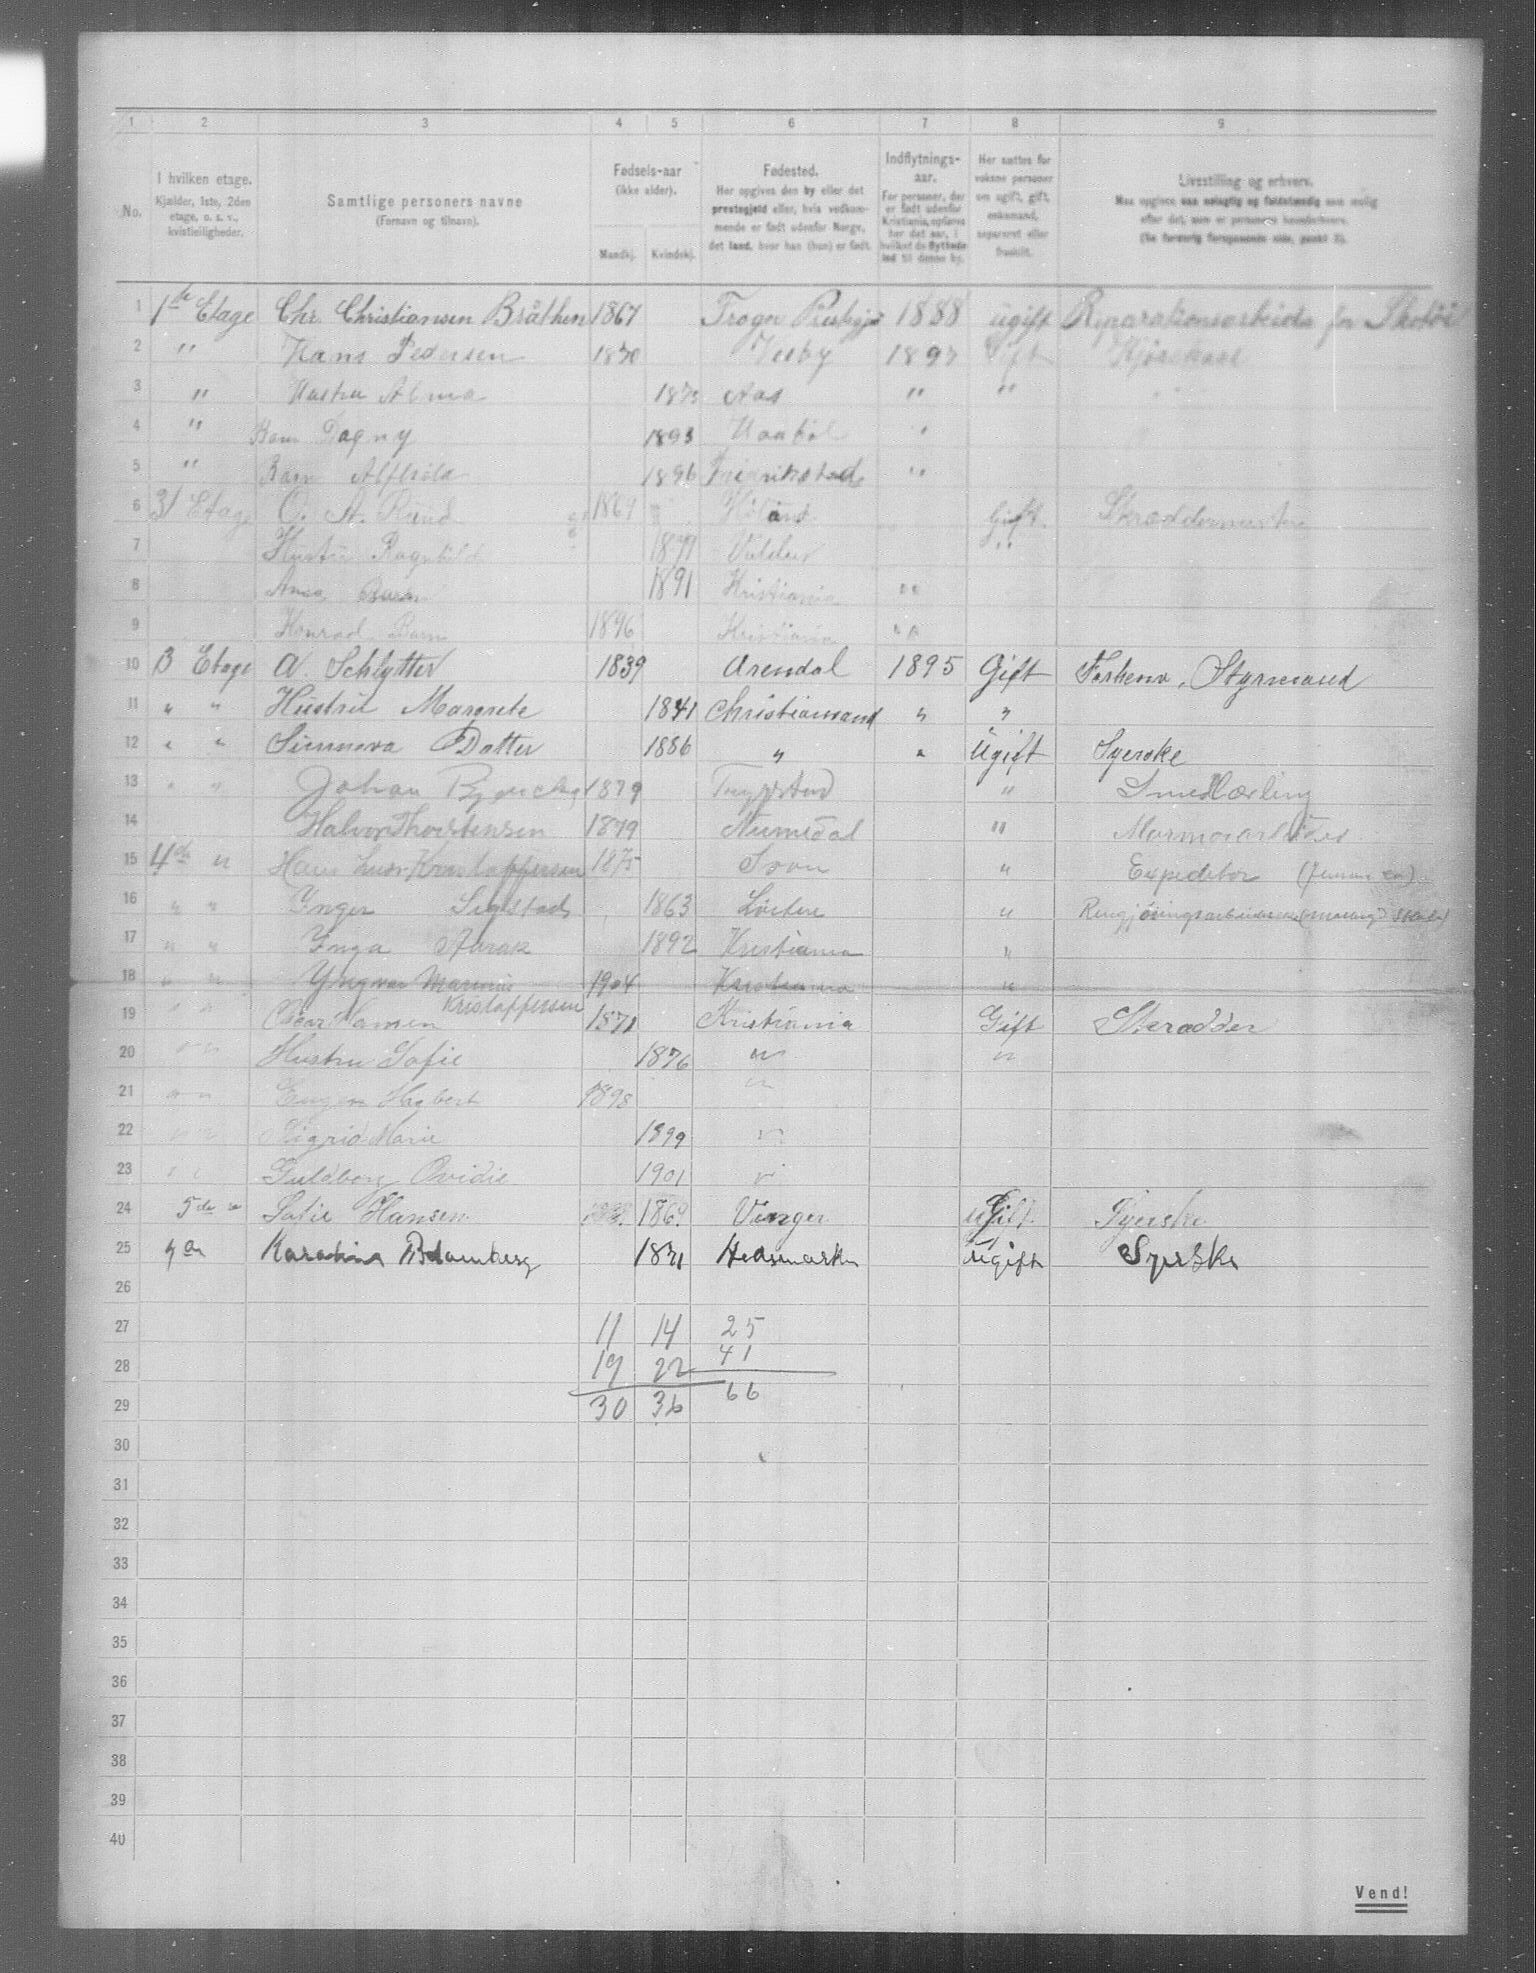 1 2 3 4 5 6 7 8 9
No.
I hvilken etage.
Kjælder, 1ste, 2den
etage, o. s. v.,
kvistleiligheder.
Samtlige personers navne
(Fornavn og tilnavn).
Fødsels-aar
(ikke alder).
Mandkj. Kvindekj.
Fødested.
Her opgives den by eller det
prestegjeld eller, hvis vedkom-
mende er født udenfor Norge,
det land, hvor han (hun) er født.
Indflytnings-
aar.
For personer, der
er født udenfor
Kristiania, opføres
her det aar, i
hvilket de flyttede
ind til denne by.
Her sættes for
voksne personer
om ugift, gift,
enkemand,
separeret eller
fraskilt.
Livsstilling og erhverv.
Maa opgives saa nøiagtig og fuldstændig som mulig
efter det, som er personens hovederhverv.
(Se forøvrig foregaaende side, punkt 3).
1 1ste Etage Chr. Christiansen Bråthen 1867 1888 ugift Reparationsarbeide for Skotøi
2 " Hans Pedersen 1870 Vestby 1897 Gift Kjørekarl
3 " Hustru Alma 1873 Aas " "
4 " Barn Dagny 1893 "
5 " Barn 1896 Fredrikstad "
6 3 Etage O. A. Rund 1867 Høland Gift Skræddermester
7 Hustru Ragnhild "
8 Anna Barn 1891 Kristiania "
9 Konrad Barn 1896 Kristiania "
10 3 Etage A. Schlytter 1839 Arendal 1895 Gift Styrmand
11 " " Hustru Margrete 1841 Christiansand " "
12 " " Sunneva Datter 1886 " " Ugift Syerske
13 " " Johan 1879 Trygstad " Smedlærling
14 Halvor Thorstensen 1879 Numedal " Marmorarbeider
15 4de " Hans Kristoffersen 1875 " Expeditør
16 " " Inger 1863 Løiten "
17 " " Inga 1892 Kristiania "
18 " " Yngvar Marinus Kristoffersen 1904 Kristiania "
19 " " Oscar Hansen 1871 Kristiania Gift Skrædder
20 " " Hustru Sofie 1876 " "
21 " " 1898 "
22 " " Sigrid Marie 1899 "
23 " " Guldborg Ovidie 1901 "
24 5de " Sofie Hansen 1869 Vinger ugift. Syerske
25 Blomberg 1871 Hedemarken Ugift Syerske
26
27 11 14 25
28 19 22 41
29 30 36 66
30
31
32
33
34
35
36
37
38
39
40
Vend!